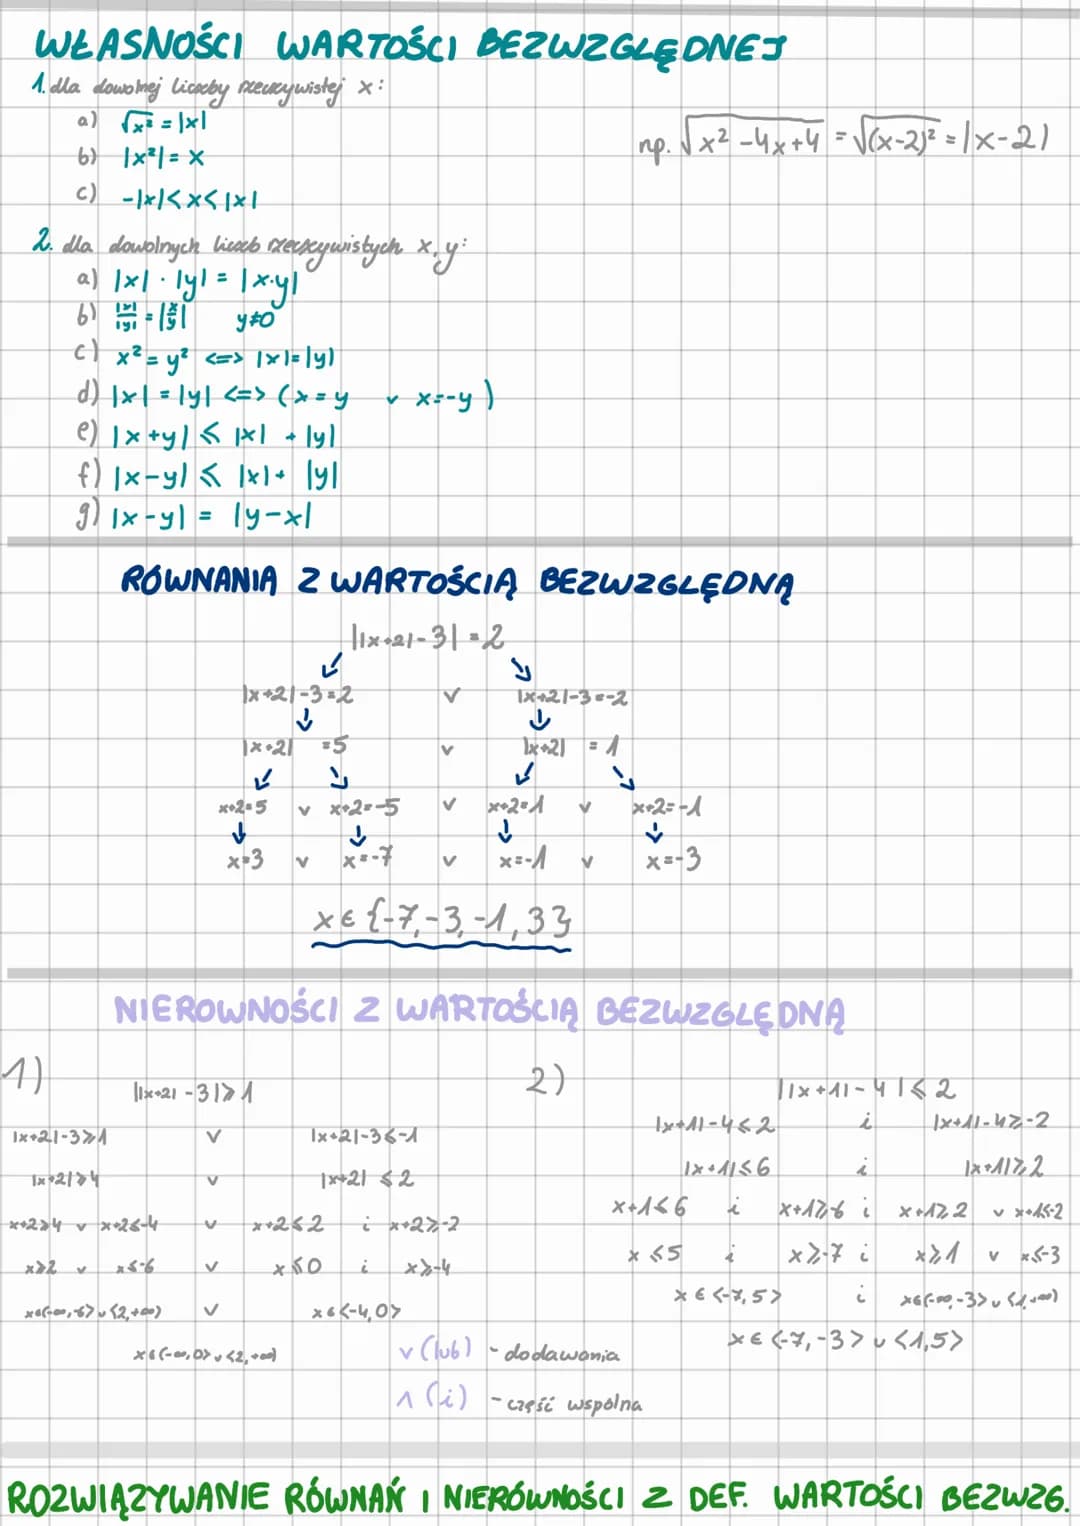 WŁASNOŚCI WARTOŚCI BEZWZGLĘDNEJ
1. dla dowolnej liczby rzeczywistej x:
a) √x² = |x|
b) |x²| = x
c) -|x| ≤ x ≤ |x|
np. √x² -4x+4 = √(x-2)² = |x-2|
2. dla dowolnych liczb rzeczywistych x, y:
a) |x| · |y| = |x·y|
b) |x|/|y| = |x/y| y≠0
c) x² = y² <=> |x|=|y|
d) |x| = |y| <=> (x = y v x=-y)
e) |x+y| ≤ |x| + |y|
f) |x-y| ≤ |x| + |y|
g) |x-y| = |y-x|
RÓWNANIA Z WARTOŚCIĄ BEZWZGLĘDNĄ
||x+2|-3| = 2
↙ ↘
|x+2|-3=2 v |x+2|-3=-2
↓ ↓
|x+2| =5 v |x+2| = 1
↙ ↘ ↙ ↘
x+2=5 v x+2=-5 v x+2=1 v x+2=-1
↓ ↓ ↓ ↓
x=3 v x=-7 v x=-1 v x=-3
x ∈ {-7,-3,-1,3}
NIERÓWNOŚCI Z WARTOŚCIĄ BEZWZGLĘDNĄ
1)
||x+2| -3| ≥ 1
|x+2|-3≥1 v |x+2|-3≤-1
|x+2|≥4 v |x+2| ≤2
x+2≥4 v x+2≤-4 v x+2≤2 i x+2≥-2
x≥2 v x≤-6 v x≤0 i x≥-4
x∈(-∞,-6> ∪ <2,+∞) v x∈<-4,0>
x∈(-∞,0> ∪ <2,+∞)
2)
||x+1|-4| ≤ 2
|x+1|-4≤2 i |x+1|-4≥-2
|x+1|≤6 i |x+1|≥2
x+1≤6 i x+1≥-6 i x+1≥2 v x+1≤-2
x≤5 i x≥-7 i x≥1 v x≤-3
x∈<-7,5> i x∈(-∞,-3> ∪ <1,+∞)
x∈<-7,-3> ∪ <1,5>
v (lub) - dodawania
∧ (i) - część wspólna
ROZWIĄZYWANIE RÓWNAŃ I NIERÓWNOŚCI Z DEF. WARTOŚCI BEZWZG.